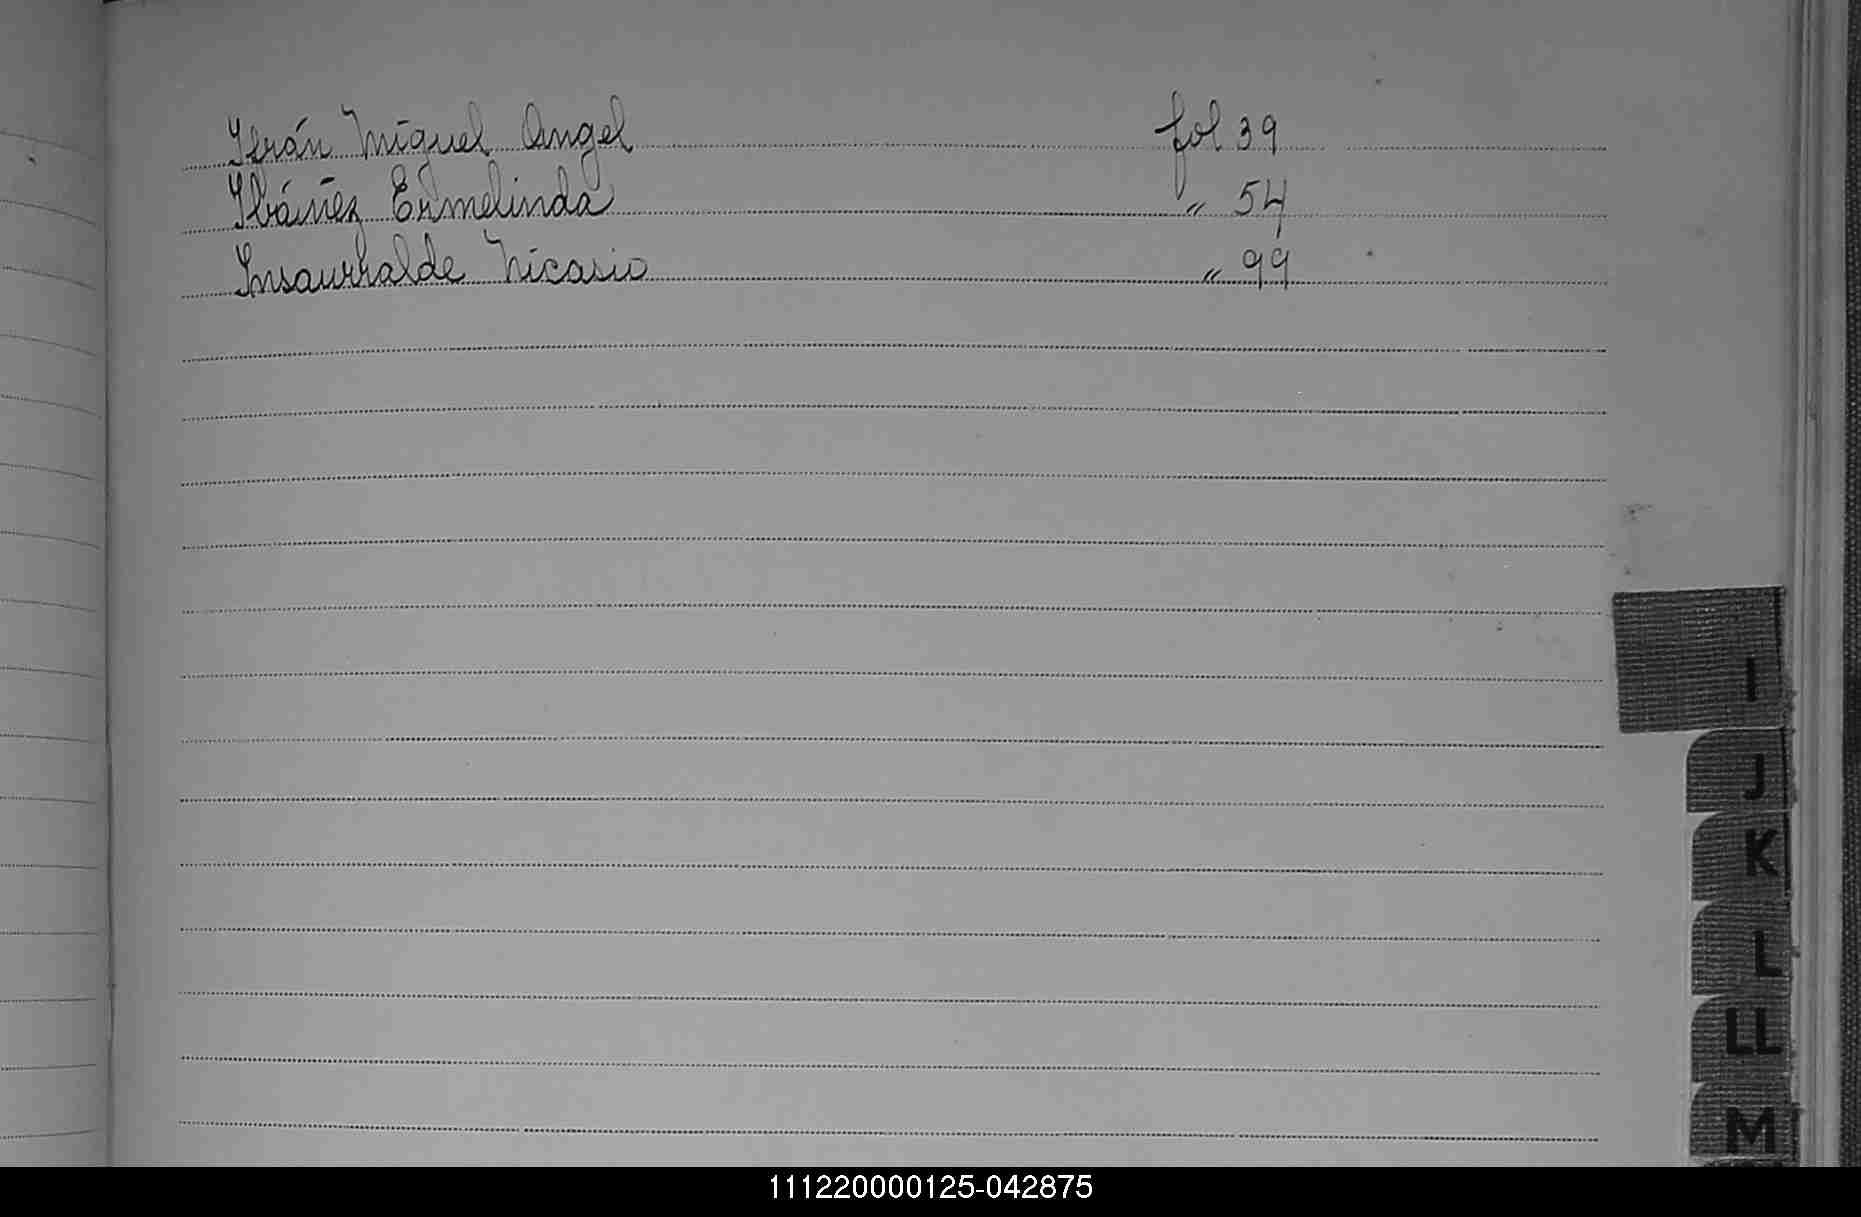 Ibrán Miguel Angel fol 39
Ibáñez Ermelinda " 54
Insaurralde Nicasio " 99
I
J
K
L
LL
M
111220000125-042875